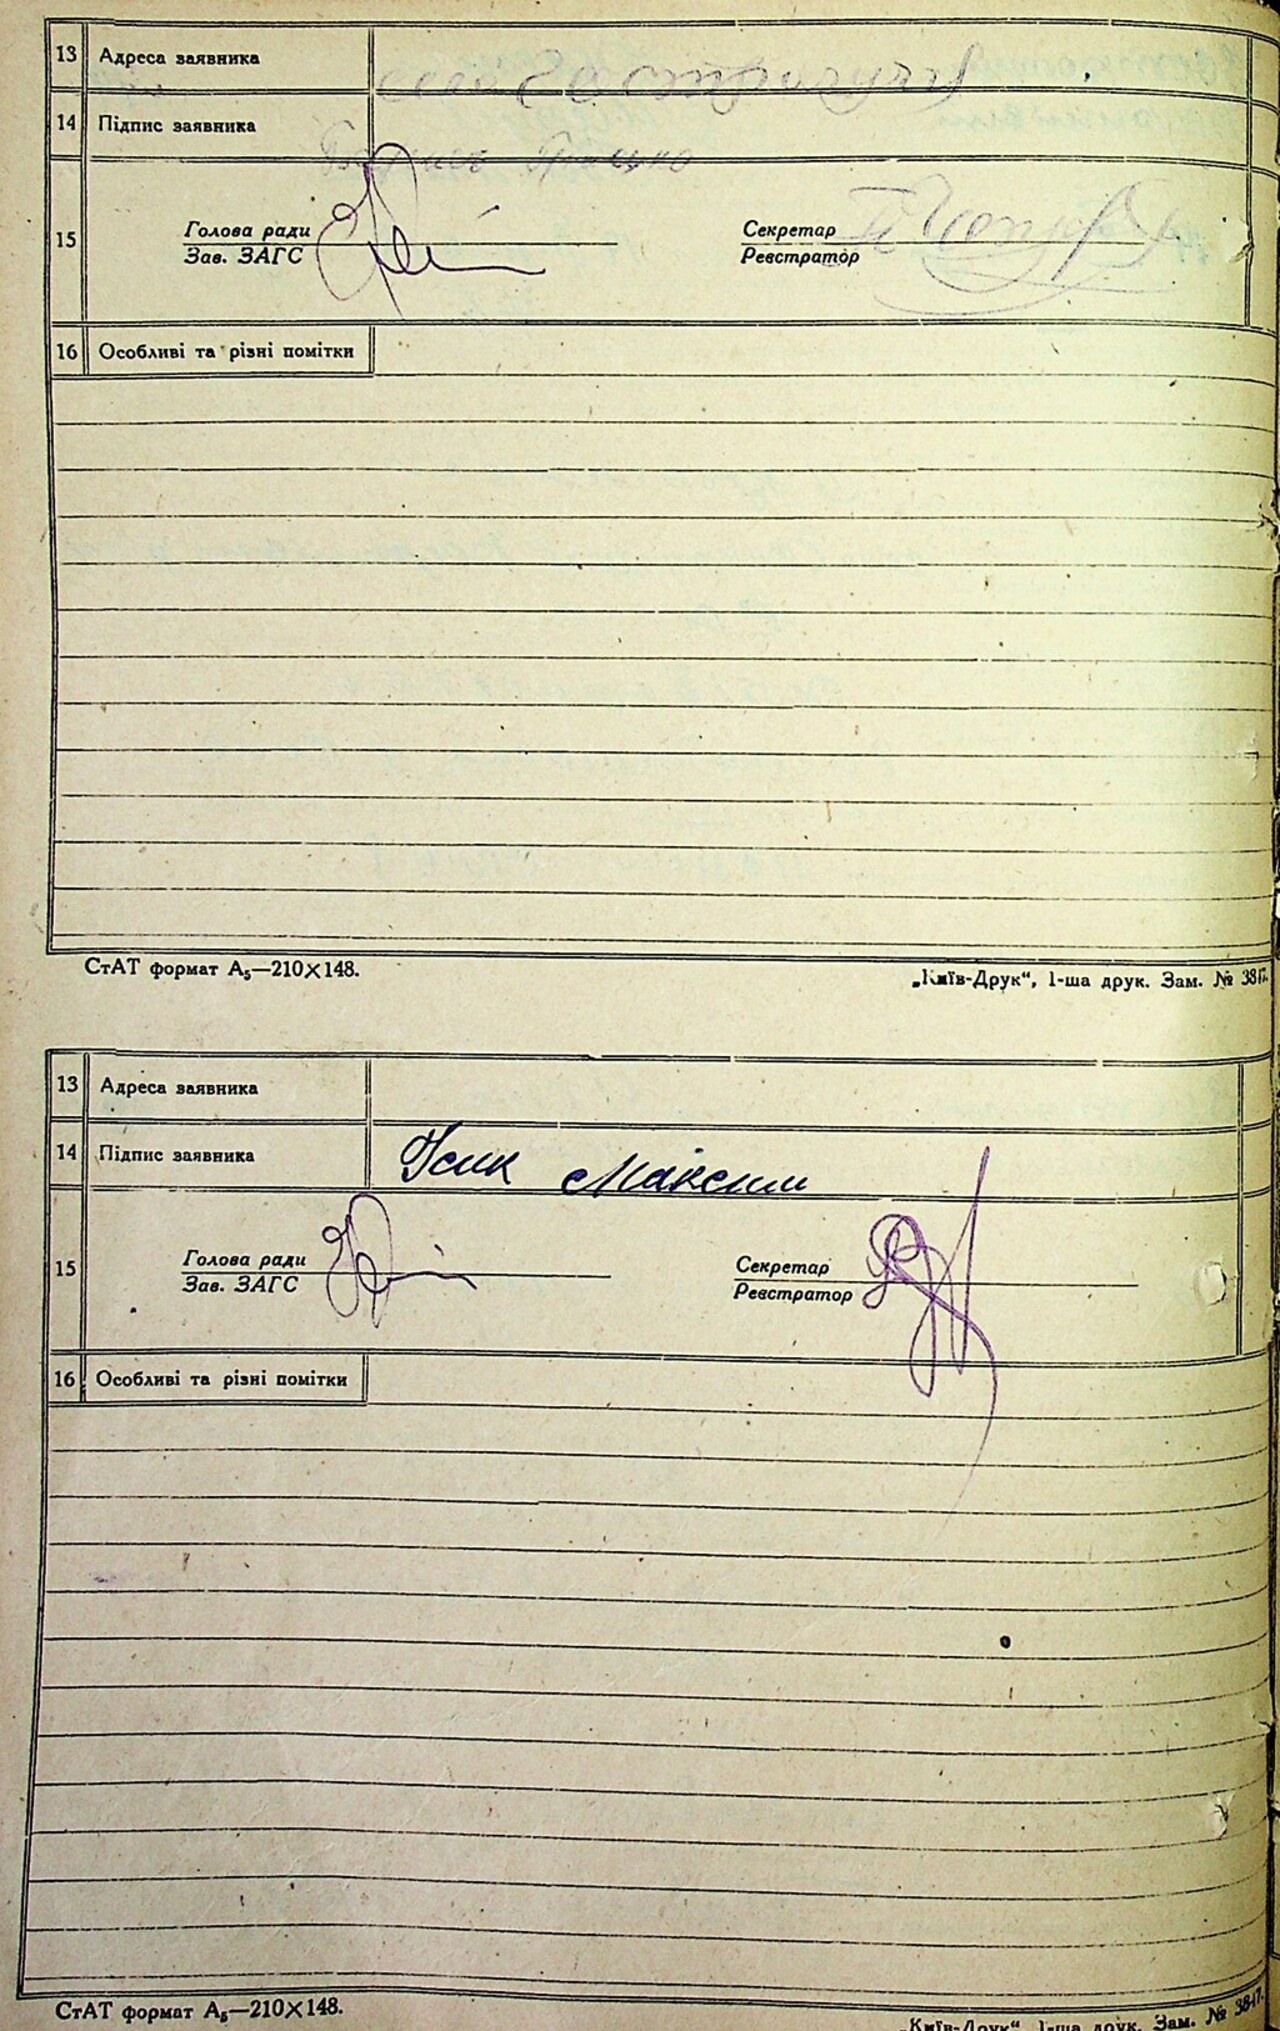 13 Адреса заявника село
14 Підпис заявника
15 Голова ради Секретар
Зав. ЗАГС Реєстратор
16 Особливі та різні помітки
СтАТ формат А₅—210×148. „Київ-Друк“, 1-ша друк. Зам. № 3817.
13 Адреса заявника
14 Підпис заявника Усик Максим
15 Голова ради Секретар
Зав. ЗАГС Реєстратор
16 Особливі та різні помітки
СтАТ формат А₅—210×148.
„Київ-Друк“, 1-ша друк. Зам. № 3817.